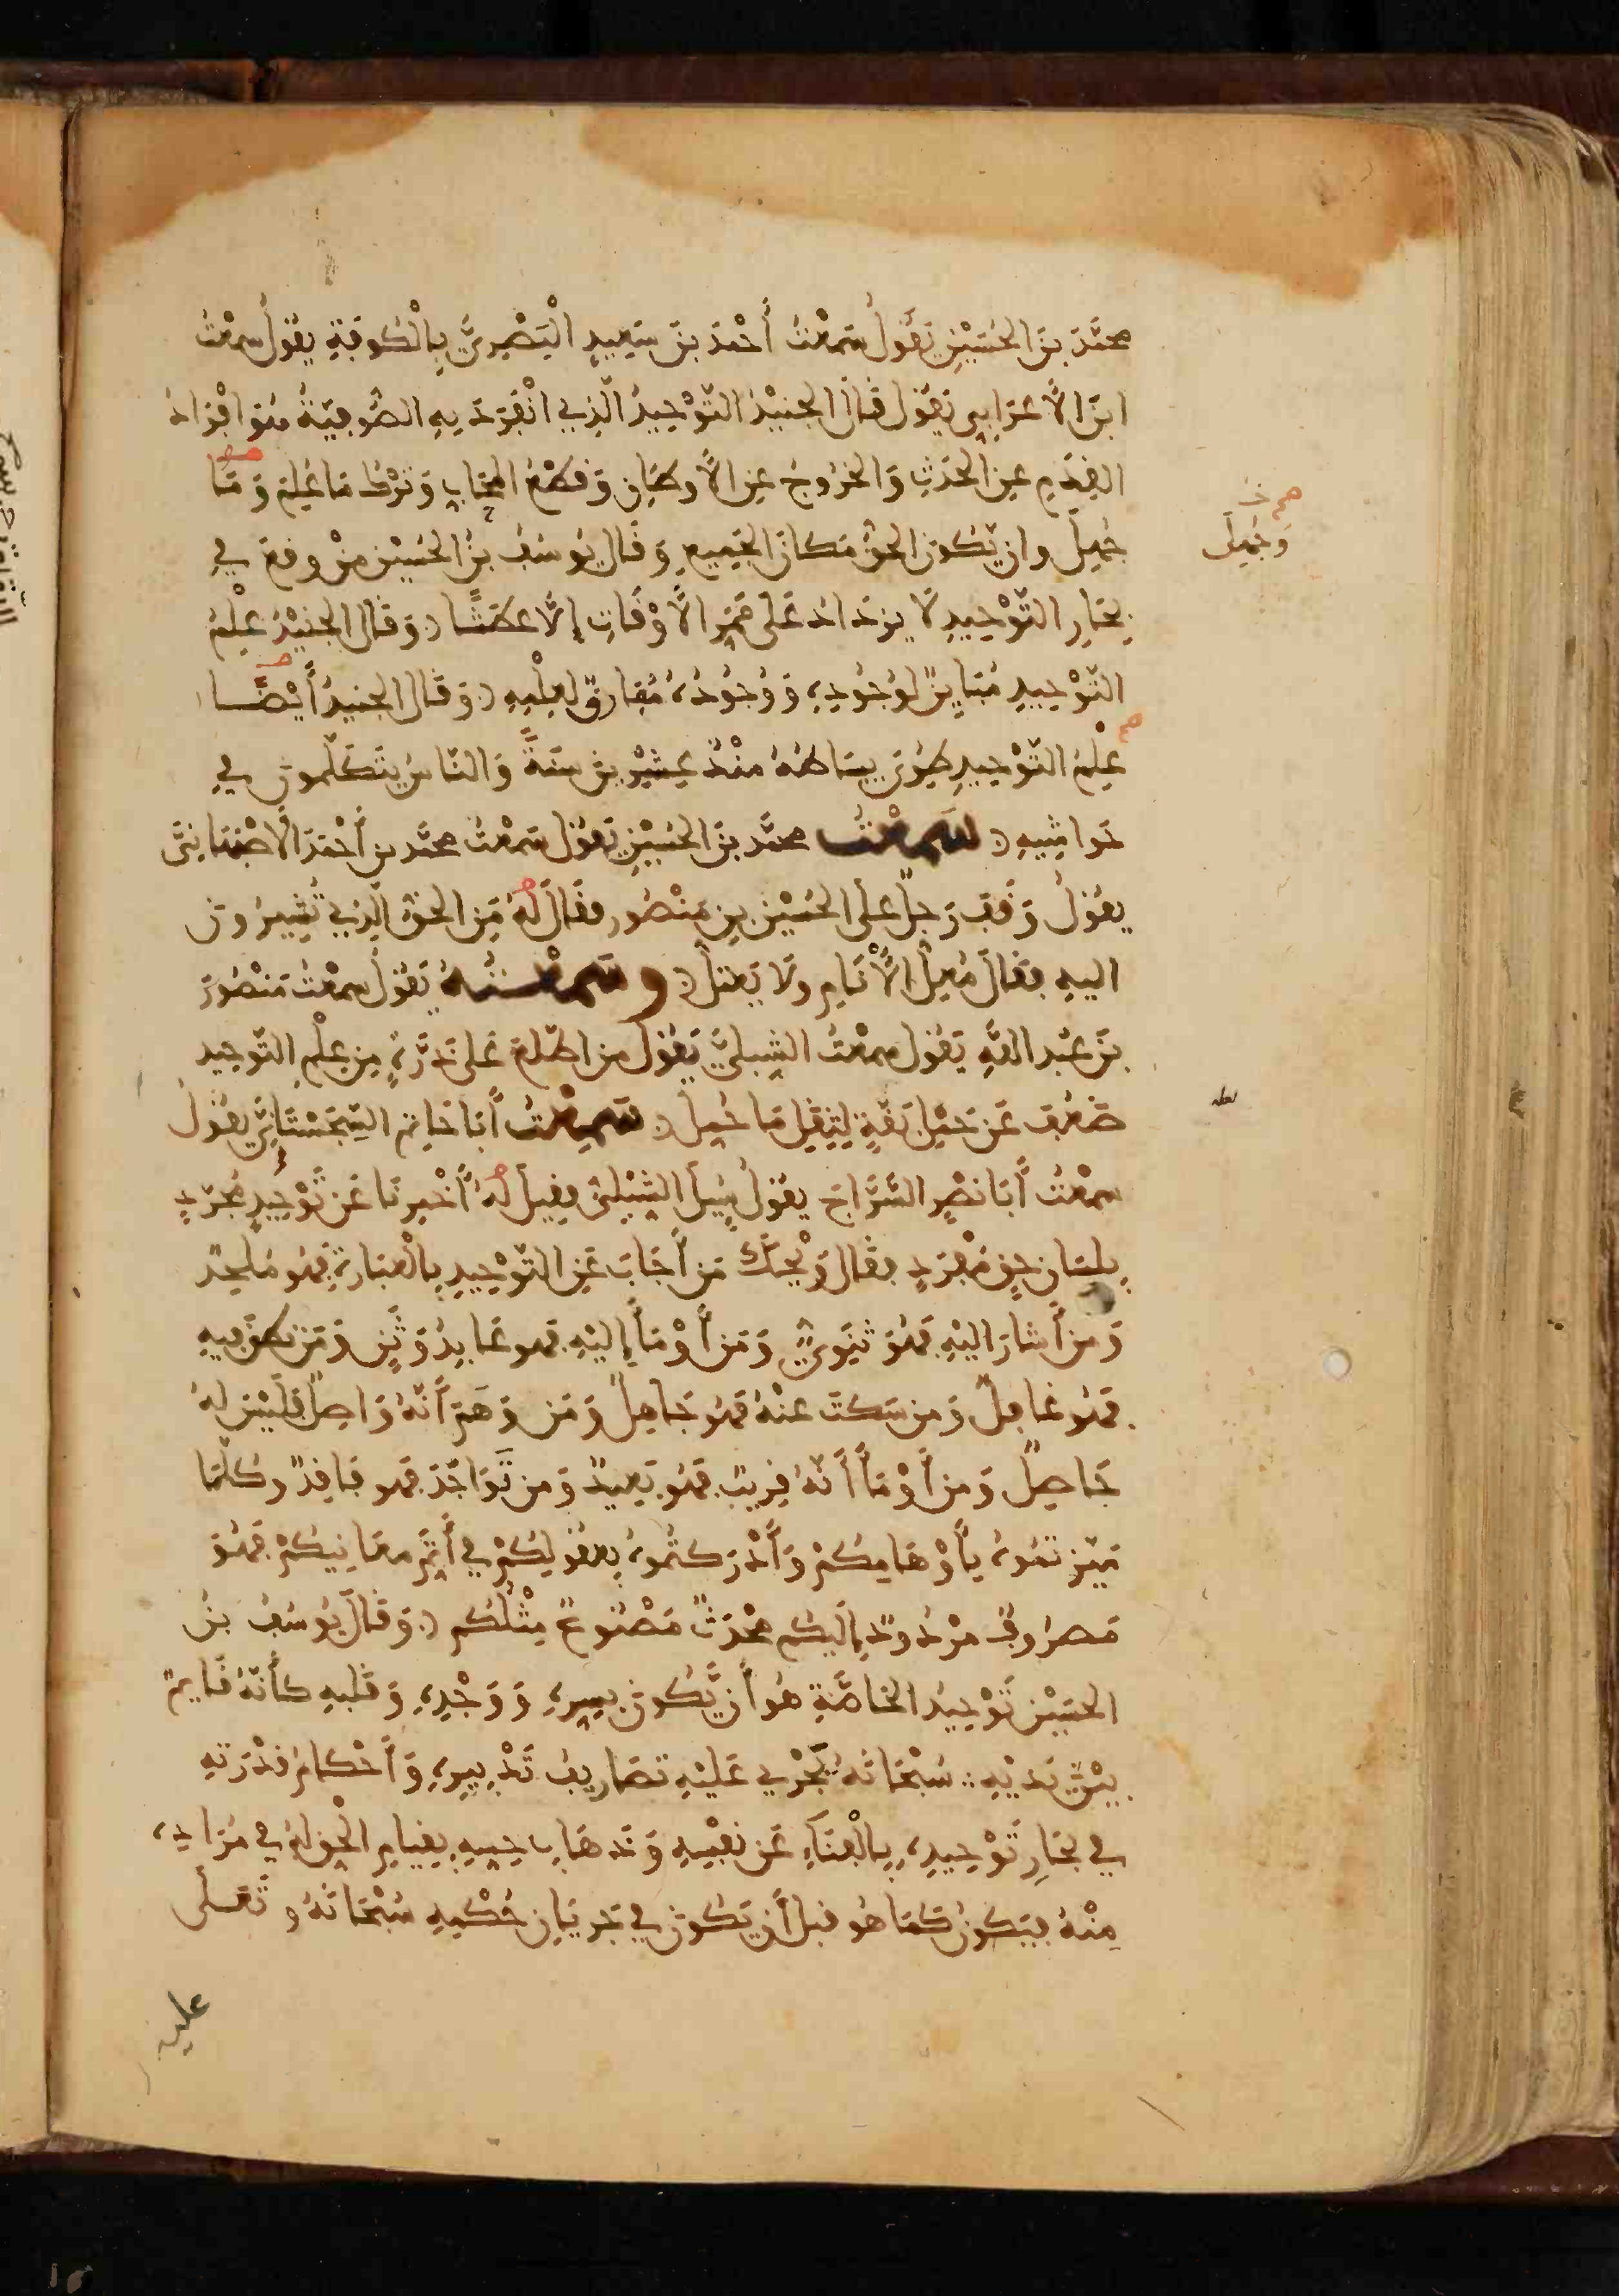 محمَّدَ بنَ الحُسَيْنِ يَقُولُ سَمِعْتُ أَحْمَدَ بنَ سَعِيدٍ الْبَصْرِيَّ بِالْكُوفَةِ يَقُولُ سمعْتُ
ابنَ الأَعْرَابِي يَقُول قَالَ الجنيْدُ التَّوْحِيدُ الَّذِي انْفَرَدَ بِهِ الصُّوفِيَّةُ هُوَ إفْرَادُ
القِدَمِ عنِ الحَدَثِ وَالخُرُوجُ عَنِ الأَوطَانِ وَقَطْعُ المحَابِ وَتَرْكُ مَا عُلِمَ وَمَا
جُهِلَ وان يَّكُونَ الحَقُّ مَكَانَ الجَمِيعِ وَقَالَ يُوسُفُ بنُ الحُسَيْنِ مَنْ وقعَ في
وَجُهِلَ
بِحَارِ التَّوْحِيدِ لَا يزدَادُ عَلَى مَمَرِّ الأَوْقَاتِ إلَّا عَطَشًا وَقَالَ الجنيْدُ عِلْمُ
التَّوْحِيدِ مُبَايِنٌ لوُجُودِهِ وَوُجُودُهُ مُفَارِقٌ لعِلْمِهِ وَقَالَ الجنيدُ أَيْضًا
عِلْمُ التَّوْحِيدِ طُوِيَ بِسَاطُهُ مُنْذُ عِشْرِينَ سَنَةً وَالنَّاسُ يَتَكَلَّمُونَ في
حَوَاشِيهِ سَمِعْتُ محمَّد بنَ الحُسَيْنِ يَقُول سَمعْتُ محمَّد بن أَحْمَدَ الأَصْبَهَانِيَّ
يقُولُ وَقَفَ رَجلٌ على الحُسَيْنِ بنِ مَنْصُورٍ فقَالَ لَهُ مَنِ الحَقُّ الَّذِي تُشِيرُونَ
اليهِ فقَالَ مُعِلُّ الأَنَامِ ولَا يَعتلُّ وسَمِعْتُهُ يَقُولُ سمعْتُ مَنْصُورَ
بنَ عَبْدِ اللَّهِ يَقُول سمعْتُ الشِّبلِيَّ يَقُولُ من اطَّلَعَ عَلى ذَرَّةٍ مِن عِلْمِ التَّوحِيدِ
ضَعُفَ عَن حَمْلِ بَقَّةٍ لِثِقَلِ مَا حُمِلَ سَمِعْتُ أَبَا حَاتِمٍ السِّجِسْتَانِيَّ يقُولُ
سمعْتُ أَبَا نَصْرٍ السَّرَّاجَ يقُولُ سُئِلَ الشِّبْلِيُّ فقِيلَ لَهُ أَخْبِرنَا عَن تَوْحِيدٍ مُجَرَّدٍ
بِلسَانِ حَقٍّ مُفْرَدٍ فقَالَ وَيْحَكَ مَن أَجَابَ عَنِ التَّوْحِيدِ بِالْعِبَارَةِ فهُو مُلْحِدٌ
وَمن أَشارَ اليْهِ فَهُوَ ثَنَوِيٌّ وَمَن أَوْمَأَ إليْهِ فهو عَابِدُ وَثَنٍ وَمَن نطَقَ فِيهِ
فهُو غَافِلٌ وَمن سَكتَ عنْهُ فهُو جَاهِلٌ وَمَن وَهَمَ أَنَّهُ وَاصِلٌ فلَيْسَ لهُ
حَاصِلٌ وَمن أَوْمَأَ أَنَّهُ قرِيبٌ فهُو بَعِيدٌ وَمن تَوَاجَدَ فهو فَاقِدٌ وكُلَّمَا
مَيَّزتمُوهُ بِأَوْهَامِكُمْ وَأَدْرَكتُمُوهُ بِعقُولِكُمْ في أَتَمِّ معَانِيكُمْ فهُوَ
مَصرُوفٌ مرْدُودٌ إليكُم محْدَثٌ مَصْنُوعٌ مِثْلُكُم وَقَالَ يُوسُفُ بنُ
الحسَيْنِ تَوْحِيدُ الخاصَّةِ هُوَ أَن يَّكُونَ بِسِرِّهِ وَوَجْدِهِ وَقَلبِهِ كأَنَّهُ قَايِمٌ
بيْنَ يَديْهِ سُبْحَانَهُ يَجْرِي عَلَيْهِ تَصَارِيفُ تَدْبِيرِهِ وَأَحْكَامُ قدْرَتِهِ
في بحَارِ تَوْحِيدِهِ بِالْفنَاءِ عَن نفْسِهِ وَذهَابِ حِسِّهِ بِقيَامِ الْحَقِّ لَهُ في مُرَادِهِ
مِنْهُ فيَكونُ كمَا هُو قبلَ أَن يَكُونَ في جَرَيَانِ حُكْمِهِ سُبْحَانَهُ وتَعَلَى
عليه